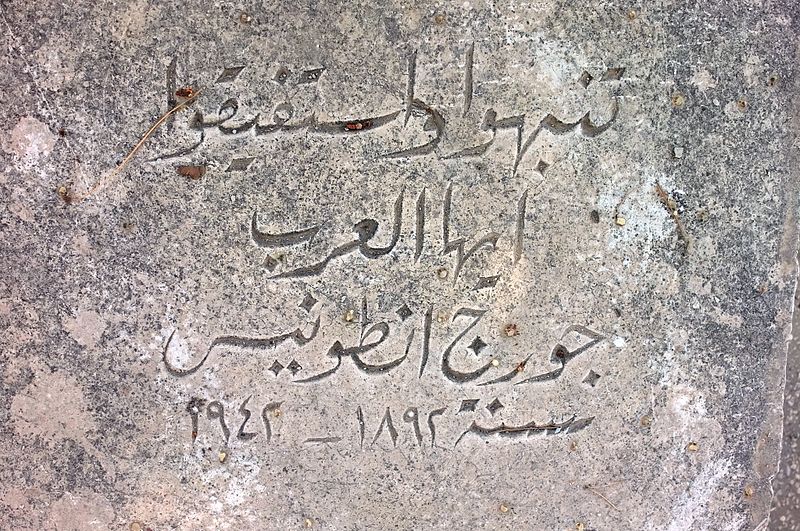 تنبهوا واستفيقوا
ايها العرب
جورج انطونيس
سنة ١٨٩٢ – ١٩٤٢